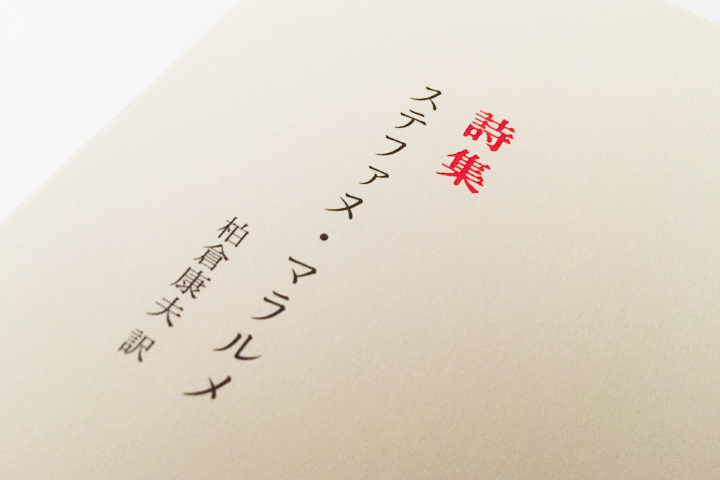 詩集
ステファヌ・マラルメ
柏倉康夫 訳